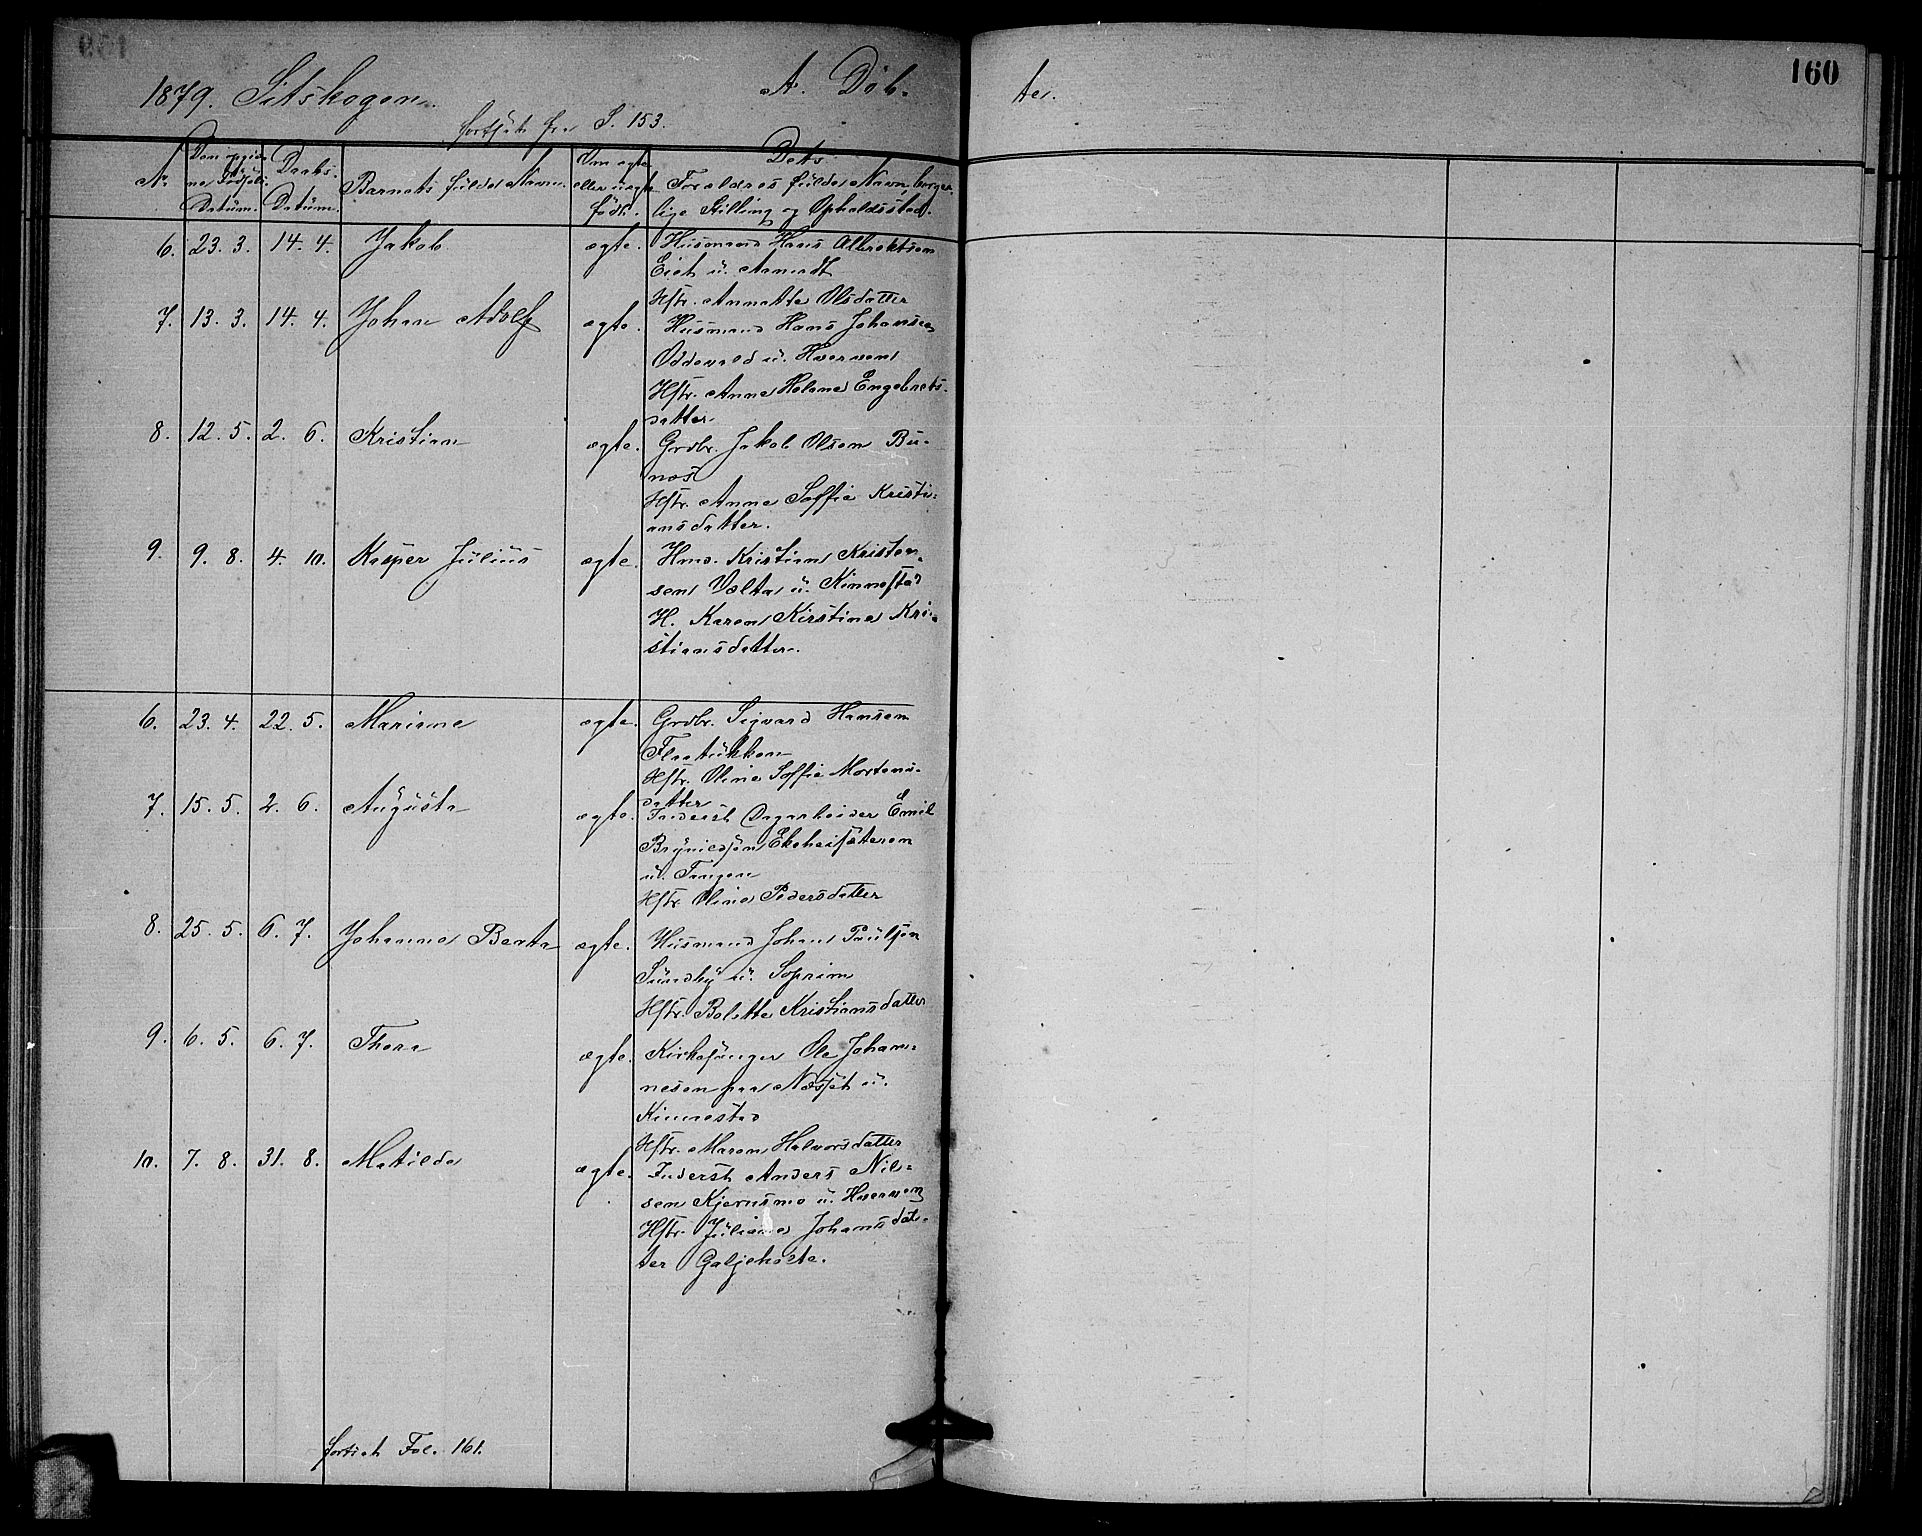 160
1879. Sitskogen. A. Døb- te.
fortsat fra S. 153.
No. Den opgivne Fødsels Datum. Daabs-Datum. Barnets fulde Navn. Om ægte eller uægte født. Dets Forældres fulde Navn, borgerlige Stilling og Opholdssted.
6. 23. 3. 14. 4. Jakob ægte. Husmand Hans Albrektsen
Eiet u.
Hstr. Annette Olsdatter
7. 13. 3. 14. 4. Johan Adolf ægte. Husmand Hans Johansen
Oddevald u. Hverven
Hstr. Anne Helene Engebrets-
datter
8. 12. 5. 2. 6. Kristian ægte. Grdbr. Jakob Olsen Bu-
næs
Hstr. Anne Soffie Kristi-
ansdatter.
9. 9. 8. 4. 10. Kasper Julius ægte. Hmd. Kristian Kristen-
sen Vælta u. Kinnestad
H. Karen Kirstine Kri-
stiansdatter.
6. 23. 4. 22. 5. Mariane ægte. Grdbr. Sigvard Hansen
Flaatukken
Hstr. Oline Soffie Mortens-
datter
7. 15. 5. 2. 6. Augusta ægte. Inderst Dagarbeider Emil
Brynildsen
u. Tangen
Hstr. Oline Pedersdatter
8. 25. 5. 6. 7. Johanne Berta ægte. Husmand Johan Paulsen
Sundby u. Soprim
Hstr. Bolette Kristiansdatter
9. 6. 5. 6. 7. Thora ægte. Kirkesanger Ole Johan-
nesen paa Næsset u.
Kinnestad
Hstr. Maren Halvorsdatter
10. 7. 8. 31. 8. Matilde ægte. Inderst Anders Nil-
sen Kjernsmo u. Hverven
Hstr. Juliane Johansdat-
ter Galjehsete.
fortsat Fol. 161.